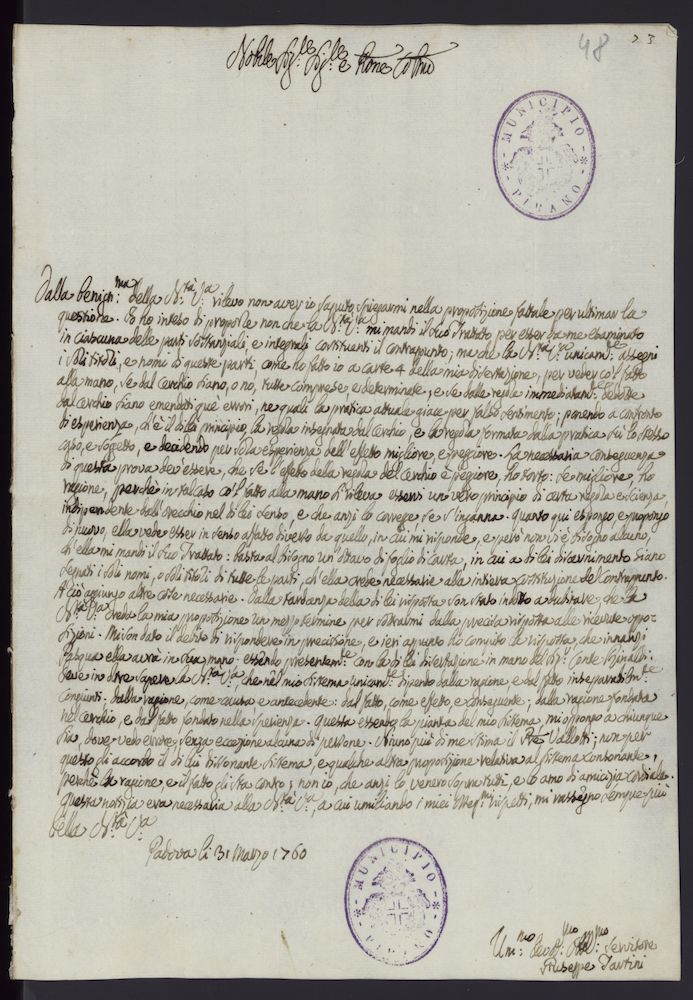 48
23
Nobile Sig:re Sig:re e Prone Colmo
MUNICIPIO
PIRANO
Dalla benign:ma della N:tà V:a rilevo non aver io saputo spiegarmi nella proposizione fattale per ultimar la
questione. Io ho inteso di proporle non che la N:tà V:a mi mandi il suo Trattato per esser da me esaminato
in ciascuna delle parti sostanziali, e integrali costituenti il contrappunto; ma che la N:tà V:a unicam:te assegni
i soli titoli, e nomi di queste parti, come ho fatto io a carte 4 della mia dissertazione, per veder co'l fatto
alla mano, se dal Cerchio siano, o no, tutte comprese, e determinate, e se dalle regole immediatam:te dedotte
dal cerchio siano emendati que' errori, ne quali la pratica attuale giace per falso sentimento: ponendo a confronto
di esperienza, ch'è il di lei principio, la regola insegnata dal cerchio, e la regola formata dalla pratica su lo stesso
caso, e soggetto, e decidendo per sola esperienza dell'effetto migliore, e peggiore. La necessaria conseguenza
di questa prova dev'essere, che se l'effetto della regola del cerchio è peggiore, ho torto: se migliore, ho
ragione, perchè in tal caso co'l fatto alla mano si rileva esservi un vero principio di certa regola e scienza,
indipendente dall'orecchio nel di lei senso, e che anzi lo corregge se s'inganna. Quanto qui espongo, e propongo
di nuovo, ella vede esser in senso affatto diverso da quello, in cui mi risponde, e però non vi è bisogno alcuno,
ch'ella mi mandi il suo Trattato: basta al bisogno un'ottavo di foglio di carta, in cui a di lei discernimento siano
segnati i soli nomi, o soli titoli di tutte le parti, ch'ella crede necessarie alla intiera costituzione del contrapunto.
A ciò aggiungo altre cose necessarie. Dalla tardanza della di lei risposta son stato indotto a dubitare, che la
N:tà V:a creda la mia proposizione un mezzo termine per sottrarmi dalla precisa risposta alle ricevute oppo-
sizioni. Mi son dato il debito di rispondere in precisione, e ieri appunto ho compito la risposta, che innanzi
Pasqua ella avrà in sua mano: essendo presentem:te con la di lei dissertazione in mano del Sig:r Conte
Devo in oltre sapere la N:tà V:a, che nel mio sistema unicam:te dipendo dalla ragione e dal fatto inseparabilm:te
congiunti. Dalla ragione, come causa e antecedente: dal fatto, come effetto, e conseguente; dalla ragione fondata
nel cerchio, e dal fatto fondato nella sperienza. Questa essendo la pianta del mio sistema, mi oppongo a chiunque
sia, dove vedo errore, senza eccezione alcuna di persone. Niuno più di me stima il P:re Vallotti; non per
questo gli accordo il di lui dissonante sistema, e qualche altra proposizione relativa al sistema consonante,
perchè la ragione, e il fatto gli sta contro; non io, che anzi lo venero sopra tutti, e lo amo di amicizia cordiale.
Questa notizia era necessaria alla N:tà V:a, a cui umiliando i miei osseq:mi rispetti, mi rassegno sempre più
Della N:tà V:a
Padova li 31 Marzo 1760
MUNICIPIO
PIRANO
Um:mo Devo:mo Obl:mo Servitore
Giuseppe Tartini